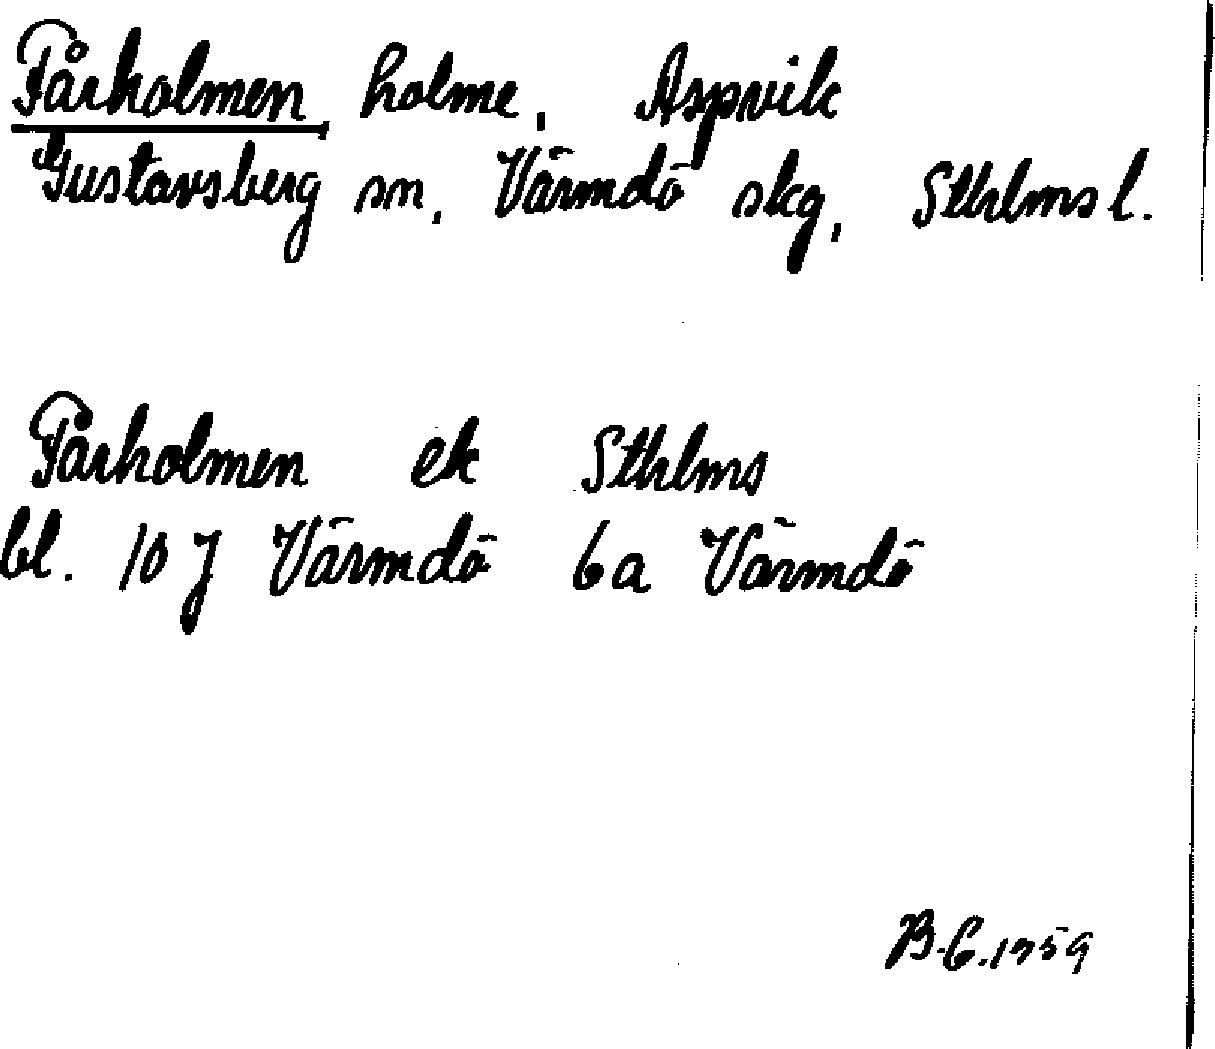 Fårholmen, holme, Aspvik
Gustavsberg sn, Värmdö skg, Sthlms l.
Fårholmen ek Sthlms
bl. 10 J Värmdö 6a Värmdö
B.C. 1959